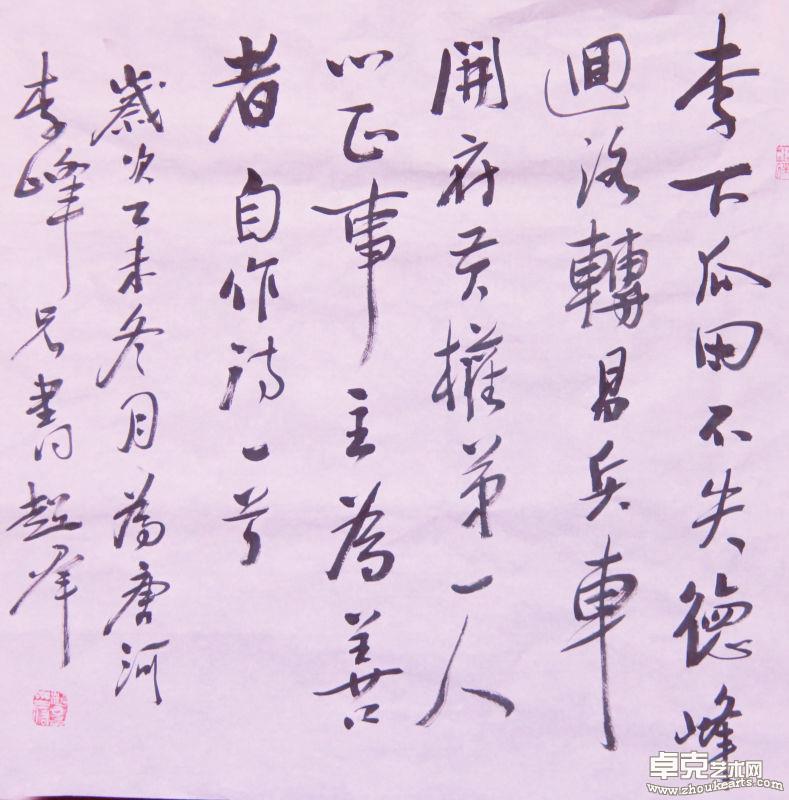 李下瓜田不失德峰
迴路轉易兵車
開府黃權第一人
心正事主為善
者自作詩一首
歲次乙未冬月為唐河
李峰兄書超群
卓克艺术网
www.zhoukearts.com